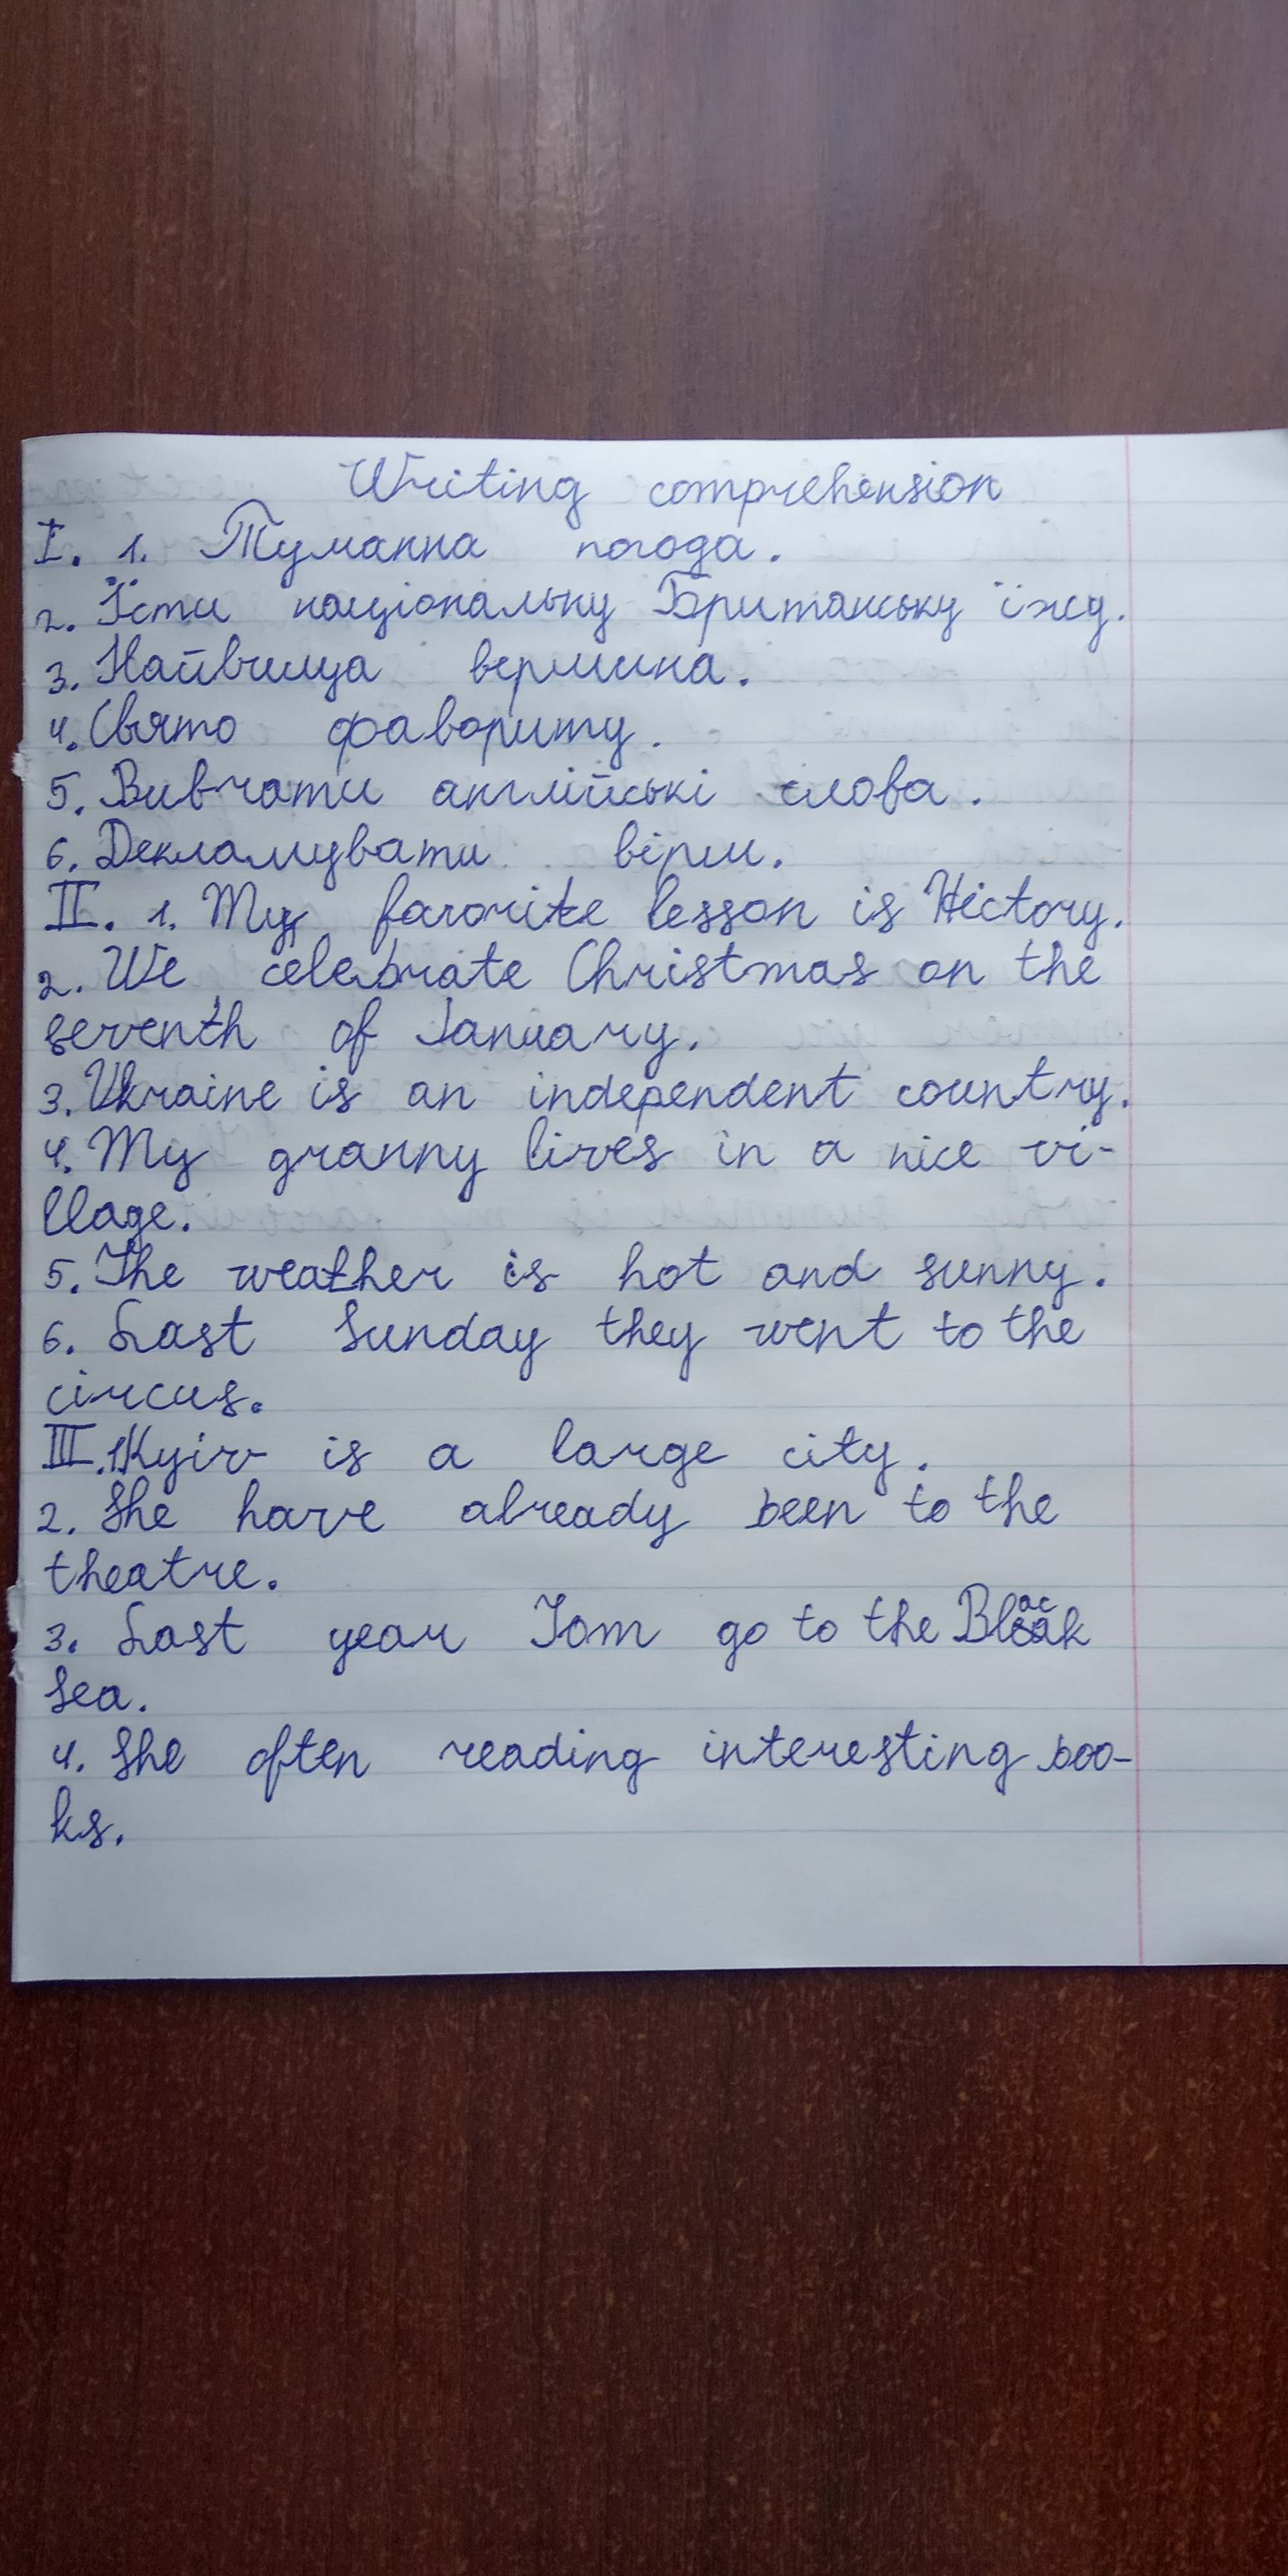 Writing comprehension
I. 1. Туманна погода.
2. Їсти національну Британську їжу.
3. Найвища вершина.
4. Свято фавориту.
5. Вивчати англійські слова.
6. Декламувати вірш.
II. 1. My favorite lesson is Hictory.
2. We celebrate Christmas on the
seventh of January.
3. Ukraine is an independent country.
4. My granny lives in a nice vi-
llage.
5. The weather is hot and sunny.
6. Last Sunday they went to the
circus.
III. 1. Kyiv is a large city.
2. She have already been to the
theatre.
3. Last year Tom go to the Black
Sea.
4. She often reading interesting boo-
ks.